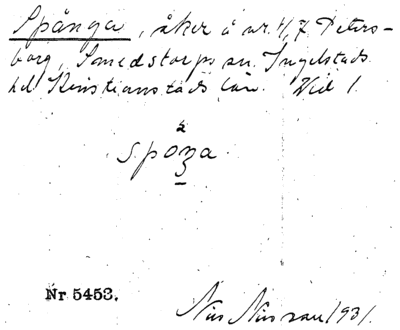 Spånga, åker å nr 4, 7 Peters-
borg, Smedstorps sn. Ingelstads
hd Kristianstads län. Vid 1.
2
spoza
Nr 5453.
Nils Nilsson 1931.